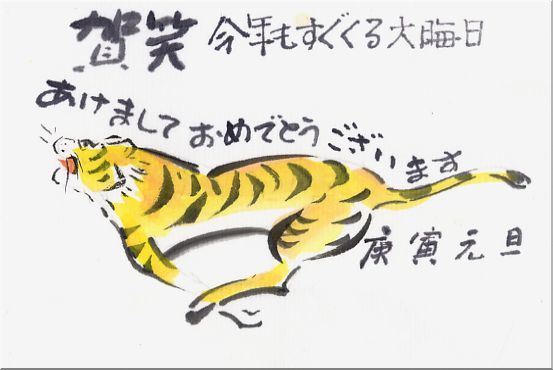 賀笑 今年もすぐくる大晦日
あけまして おめでとう ございます
庚寅元旦